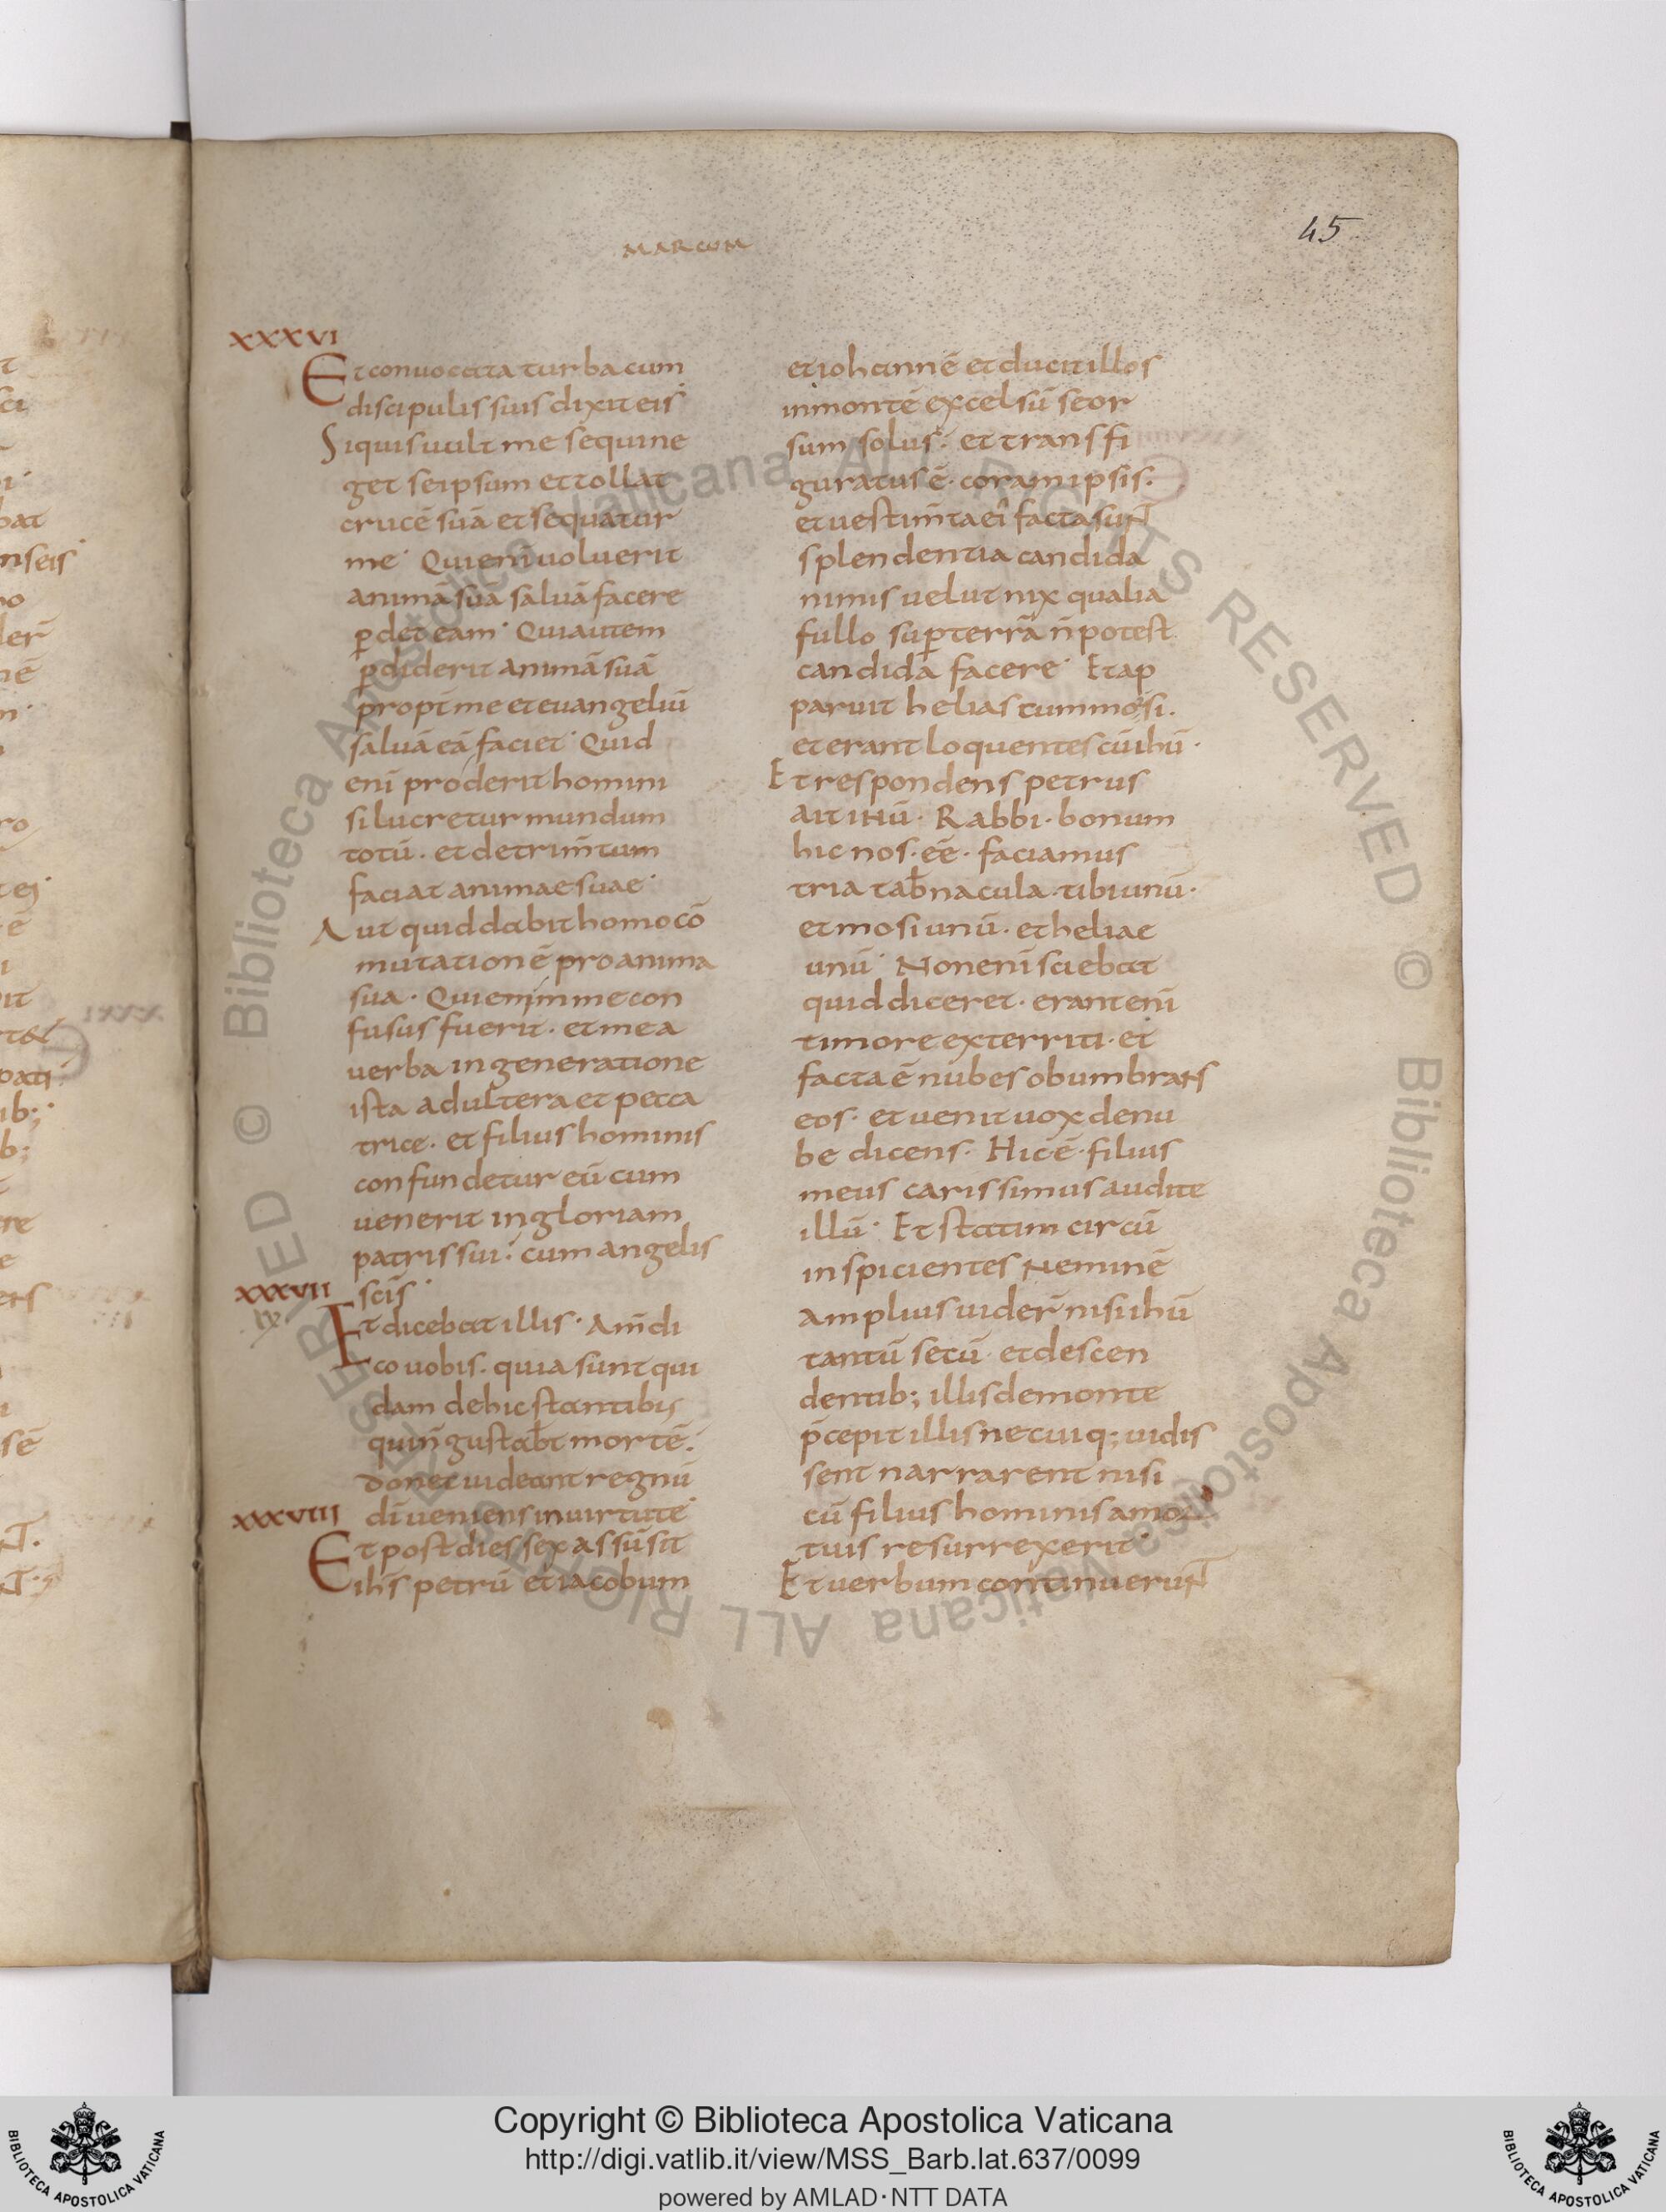 MARCUM
45
XXXVI
Et conuocata turba cum
discipulis suis dixit eis
Siquis uult me sequi ne
get seipsum et tollat
crucē suā et sequatur
me· Qui eni uoluerit
animā suā saluā facere
ꝑdet eam· Qui autem
ꝑdiderit animā suā
propt̄ me et euangeliū
saluā eā faciet· Quid
enī proderit homini
si lucretur mundum
totū· et detrim̄tum
faciat animae suae·
Aut quid dabit homo cō
mutationē pro anima
sua· Qui enim me con
fusus fuerit· et mea
uerba in generatione
ista adultera et pecca
trice· et filius hominis
confundetur eū cum
uenerit in gloriam
patris sui· cum angelis
sc̄is·
XXXVII
Et dicebat illis· Am̄ di
co uobis· quia sunt qui
dam de hic stantibus
qui n̄ gustab̄t mortē·
donec uideant regnū
dī ueniens in uirtute·
XXXVIII
Et post dies sex assūsit
ih̄s petrū et iacobum
et iohannē et ducit illos
in montē excelsū seor
sum solus· et transfi
guratus ē· coram ipsis·
et uestim̄ta ei' facta sunt
splendentia candida
nimis uelut nix qualia
fullo suꝑ terrā n̄ potest
candida facere· Et ap
paruit helias cum mosi·
et erant loquentes cū ihū·
Et respondens petrus
ait ihū· Rabbi· bonum
hic nos· ēē· faciamus
tria tab̄nacula· tibi unū·
et mosi unū· et heliae
unū· Non enī sciebat
quid diceret· erant enī
timore exterriti· et
facta ē nubes obumbrans
eos· et uenit uox de nu
be dicens· Hic ē· filius
meus carissimus audite
illū· Et statim circū
inspicientes neminē
amplius uider̄ nisi ihū
tantū secū· et descen
dentib; illis de monte
p̄cepit illis ne cuiq; uidis
sent narrarent nisi
cū filius hominis a mor
tuis resurrexerit·
Et uerbum continuerunt
Copyright © Biblioteca Apostolica Vaticana
http://digi.vatlib.it/view/MSS_Barb.lat.637/0099
powered by AMLAD·NTT DATA
BIBLIOTECA APOSTOLICA VATICANA
BIBLIOTECA APOSTOLICA VATICANA
© Biblioteca Apostolica Vaticana ALL RIGHTS RESERVED © Biblioteca Apostolica Vaticana ALL RIGHTS RESERVED